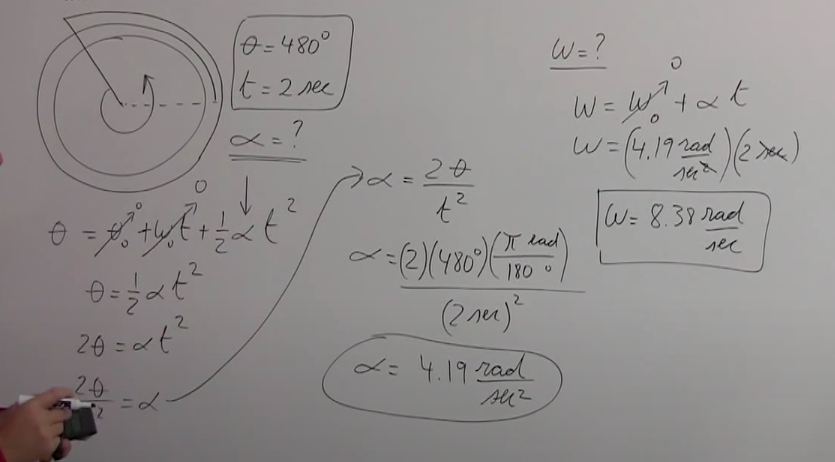 θ = 480°
t = 2 sec
α = ?
θ = θ₀ + ω₀t + 1/2 α t²
0 0
θ = 1/2 α t²
2θ = α t²
2θ/t² = α
α = 2θ/t²
α = (2)(480°)(π rad/180°)/(2 sec)²
α = 4.19 rad/sec²
W = ?
W = W₀ + α t
0
W = (4.19 rad/sec²)(2 sec)
W = 8.38 rad/sec